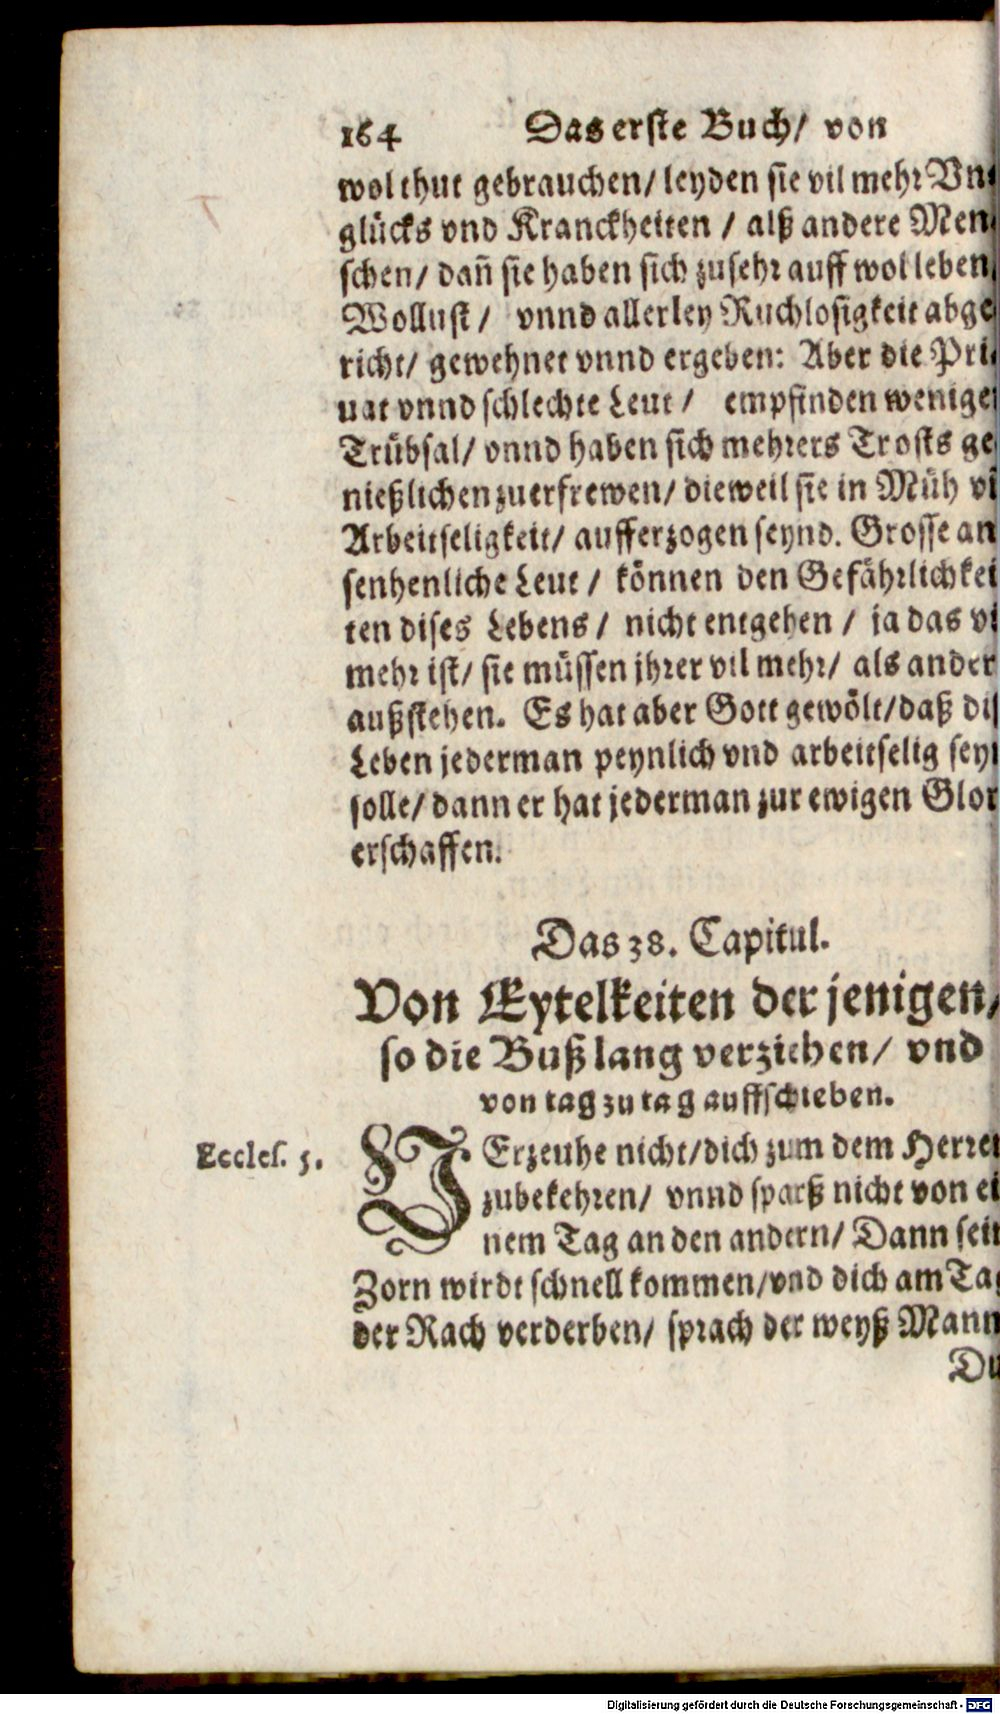 164 Das erste Buch/ von
wol thut gebrauchen/ leyden sie vil mehr Vn⸗
glücks vnd Kranckheiten / alß andere Men⸗
schen/ dañ sie haben sich zusehr auff wol leben,
Wollust / vnnd allerley Ruchlosigkeit abge
richt/ gewehnet vnnd ergeben: Aber die Pri⸗
uat vnnd schlechte Leut / empfinden wenige
Trübsal/ vnnd haben sich mehrers Trosts ge
nießlichen zuerfrewen/ dieweil sie in Müh vñ
Arbeitseligkeit/ aufferzogen seynd. Grosse an
senhenliche Leut / können den Gefährlichkei
ten dises Lebens / nicht entgehen / ja das vi
mehr ist/ sie müssen jhrer vil mehr/ als ander
außstehen. Es hat aber Gott gewölt/daß diß
Leben jederman peynlich vnd arbeitselig sey
solle/ dann er hat jederman zur ewigen Glor
erschaffen.
Das 38. Capitul.
Von Eytelkeiten der jenigen/
so die Buß lang verziehen/ vnd
von tag zu tag auffschieben.
Eccles. 5.
VErzeuhe nicht/dich zum dem Herren
zubekehren/ vnnd sparß nicht von ei
nem Tag an den andern/ Dann sein
Zorn wirdt schnell kommen/vnd dich am Ta
der Rach verderben/ sprach der weyß Mann
Du
Digitalisierung gefördert durch die Deutsche Forschungsgemeinschaft - DFG